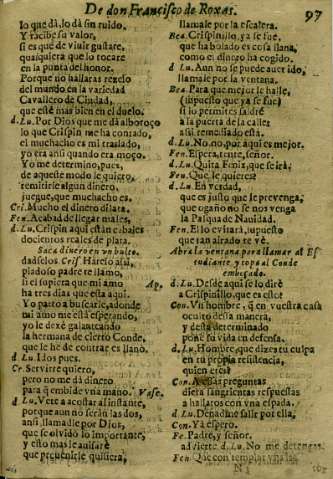 De don Francisco de Roxas.
97
lo que dà, lo dà sin ruido.
Y recibe su valor,
si es que de viuir gustare,
qualquiera que lo tocare
en la punta del honor.
Porque no hallaràs rezelo
del mundo en la variedad
Cauallero de Ciudad,
que estè mas bien en el duelo.
d. Lu. Por Dios que me dà alboroço
lo que Crispin me ha contado,
el muchacho es mi traslado,
yo era ansi quando era moço.
Yo me determino, pues,
de aqueste modo le quiero
remitirle algun dinero,
juegue, que muchacho es.
Cri. Mucho el dinero dilata.
Fen. Acabad de llegar males,
d. Lu. Crispin aqui estàn cabales
docientos reales de plata.
Saca dinero en vn bulto.
daselos. Crisp. Harelo assi,
piadoso padre te llamo,
si el supiera que mi amo Ap.
ha tres dias que està aqui.
Yo parto a buscarle, adonde
mi amo me està esperando,
yo le dexè galanteando
la hermana de cierto Conde,
que le he de contar es llano.
d. Lu. Idos pues.
Cr. Servirte quiero,
pero no me dà dinero
para q̃ embide vna mano. Vase.
d. Lu. Vete a acostar al instante,
porque aun no seràn las dos,
ansi, llamadle por Dios,
que se oluidò lo importante,
y esto mas le auisarè
que preuenirle quisiera,
llamale por la escalera.
Bea. Crispinillo, ya se fue,
que ha bolado es cosa llana,
como el dinero ha cogido.
d. Lu. Aun no se puede auer ido,
llamale por la ventana.
Bea. Para que mejor le halle,
(supuesto que ya se fue)
si lo permites saldrè
a la puerta de la calle
assi remediado esta.
d. Lu. No no, por aqui es mejor.
Fen. Espera, tente, señor.
d. Lu. Quita Fenix, que se irà.
Fen. Que le quieres?
d. Lu. En verdad,
que es justo que le preuenga,
que ogaño no se nos venga
la Pasqua de Nauidad.
Fen. El lo euitarà, supuesto
que tan airado te vè.
Abre la ventana para llamar al Estudiante, y topa al Conde
embozado.
d. Lu. Desde aqui se lo dirè
a Crispinillo, que es esto?
Con. Vn hombre, q̃ en vuestra casa
oculto desta manera,
y desta determinado
pone su vida en defensa.
d. Lu. Hombre, que dizes tu culpa
en tu propia resistencia,
quien eres?
Con. A essas preguntas
diera sangrientas respuestas
a hallaros con vna espada.
d. Lu. Dexadme salir por ella,
Con. Ya espero.
Fe. Padre, y señor.
advierte d. Lu. No me detengas.
Fen. Que con templar vna
N